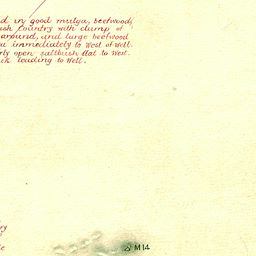 d in good mulga, beefwood,
ush Country with clump of
around, and large beefwood
immediately to West of Well.
rly open saltbush flat to West.
leading to Well.
ry
te
M14